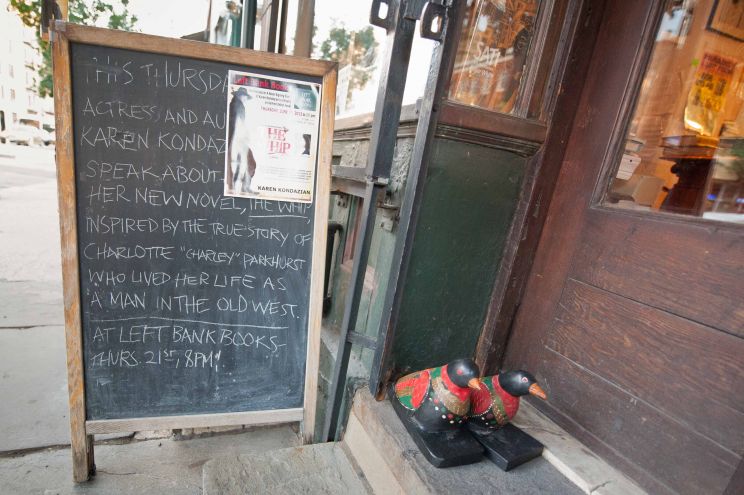 THIS THURSDA
ACTRESS AND AU
KAREN KONDAZ
SPEAK ABOUT
HER NEW NOVEL, THE WHIP
INSPIRED BY THE TRUE STORY OF
CHARLOTTE "CHARLEY" PARKHURST
WHO LIVED HER LIFE AS
A MAN IN THE OLD WEST.
AT LEFT BANK BOOKS-
THURS. 21ST, 8PM!
Left Bank Books
THE
WHIP
KAREN KONDAZIAN